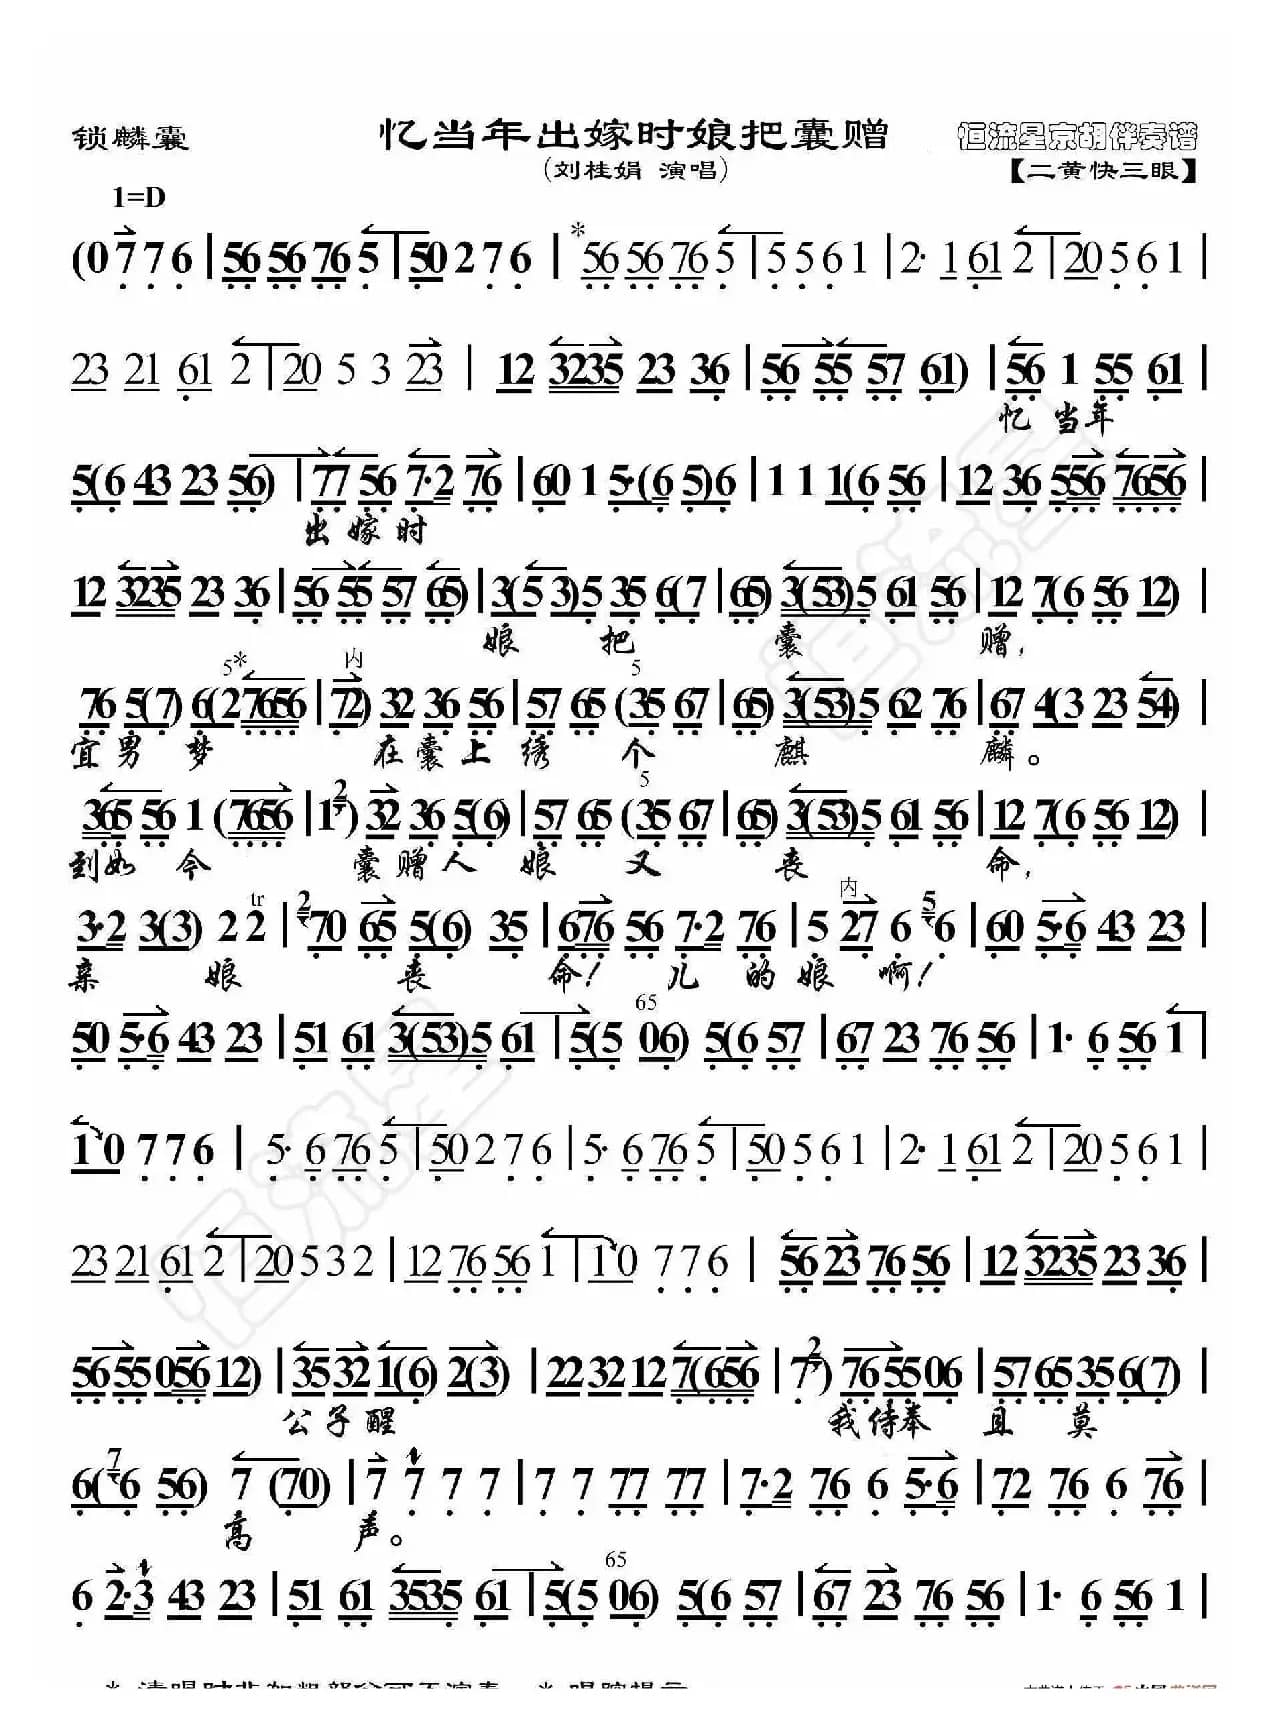 锁麟囊
忆当年出嫁时娘把囊赠
恒流星京胡伴奏谱
(刘桂娟 演唱)
【二黄快三眼】
1=D
(0 7 7 6 | 56 56 76 5 | 50 2 7 6 | * 56 56 76 5 | 5 5 6 1 | 2· 1 61 2 | 20 5 6 1 |
23 21 61 2 | 20 5 3 23 | 12 3235 23 36 | 56 55 57 61) | 56 1 55 61 |
忆 当年
5(6 43 23 56) | 77 56 7·2 76 | 60 1 5·(6 5)6 | 1 1 1(6 56 | 12 36 556 7656 |
出 嫁 时
12 3235 23 36 | 56 55 57 65) | 3(5 3)5 35 6(7 | 65) 3(53)5 61 56 | 12 7(6 56 12) |
娘 把 囊 赠,
5* 内 5
76 5(7) 6(27656 | 72) 32 36 56 | 57 65 (35 67 | 65) 3(53)5 62 76 | 67 4(3 23 54) |
宜男 梦 在囊上绣 个 麒 麟。
2 5
365 56 1 (7656 | 1) 32 36 5(6) | 57 65 (35 67 | 65) 3(53)5 61 56 | 12 7(6 56 12) |
到如 今 囊赠人 娘 又 丧 命,
tr 2 内 5
3·2 3(3) 2 2 | 70 65 5(6) 35 | 676 56 7·2 76 | 5 27 6 6 | 60 5·6 43 23 |
亲 娘 丧 命! 儿 的娘 啊!
65
50 5·6 43 23 | 51 61 3(53)5 61 | 5(5 06) 5(6 57 | 67 23 76 56 | 1· 6 56 1 |
1 0 7 7 6 | 5· 6 76 5 | 50 2 7 6 | 5· 6 76 5 | 50 5 6 1 | 2· 1 61 2 | 20 5 6 1 |
23 21 61 2 | 20 5 3 2 | 12 76 56 1 | 1 0 7 7 6 | 56 23 76 56 | 12 3235 23 36 |
2
56 55 056 12) | 35 32 1(6) 2(3) | 22 32 12 7(656 | 7) 76 55 06 | 57 65 35 6(7) |
公 子 醒 我侍奉 且 莫
7
6(6 56) 7 (70) | 7 7 7 7 | 7 7 77 77 | 7·2 76 6 5·6 | 72 76 6 76 |
高 声。
65
6 2·3 43 23 | 51 61 3535 61 | 5(5 06) 5(6 57 | 67 23 76 56 | 1· 6 56 1 |